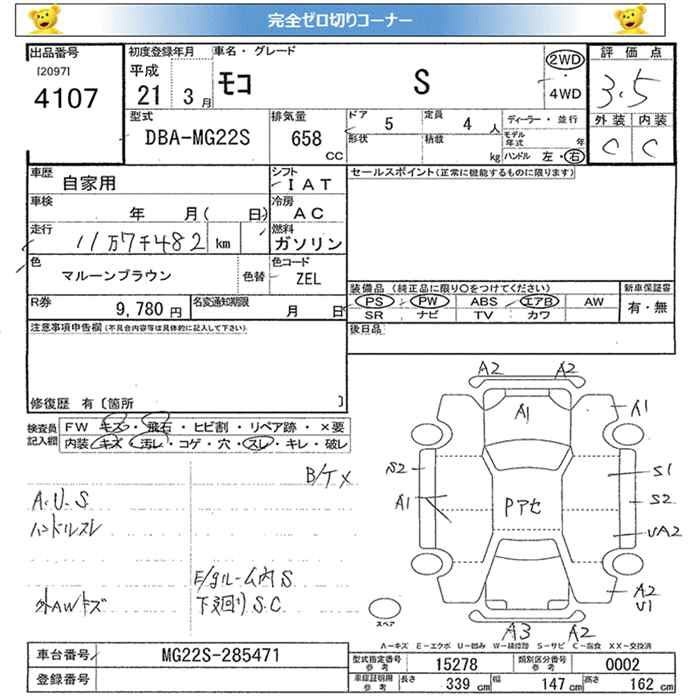 完全ゼロ切りコーナー
出品番号
[2097]
4107
初度登録年月
平成
21 3月
車名・グレード
モコ S
2WD
・
4WD
評価点
3.5
外装 内装
C C
型式
DBA-MG22S
排気量
658
CC
ドア 5
形状
定員 4人
積載 kg
ディーラー・並行
モデル年式 年
ハンドル 左・右
車歴
自家用
シフト
IAT
セールスポイント(正常に機能するものに限ります)
車検
年 月( 日)
冷房
AC
走行
11万7千482 km
燃料
ガソリン
色
マルーンブラウン
色替
色コード
ZEL
装備品(純正品に限り○をつけてください)
PS PW ABS エアB AW
SR ナビ TV カワ
新車保証書
有・無
R券
9,780円
名変通知期限
月 日
後日品
注意事項申告欄(不具合内容等は具体的に記入して下さい)
修復歴 有〔箇所 〕
検査員記入欄
FW キズ・飛石・ヒビ割・リペア跡・×要
内装 キズ・汚レ・コゲ・穴・スレ・キレ・破レ
B/T×
A.U.S
ハンドルスレ
E/gルーム内S
外AWキズ
下廻りS.C
A2 A2
A1 A1
S2 S1
A1 Pアセ S2
UA2
A2
U1
A3 A2
スペア
A-キズ E-エクボ U-凹み W-補修跡 S-サビ C-腐食 XX-交換済
車台番号
MG22S-285471
登録番号
型式指定番号
参考
15278
類別区分番号
参考
0002
車庫証明用
参考
長さ 339cm
幅 147cm
高さ 162cm